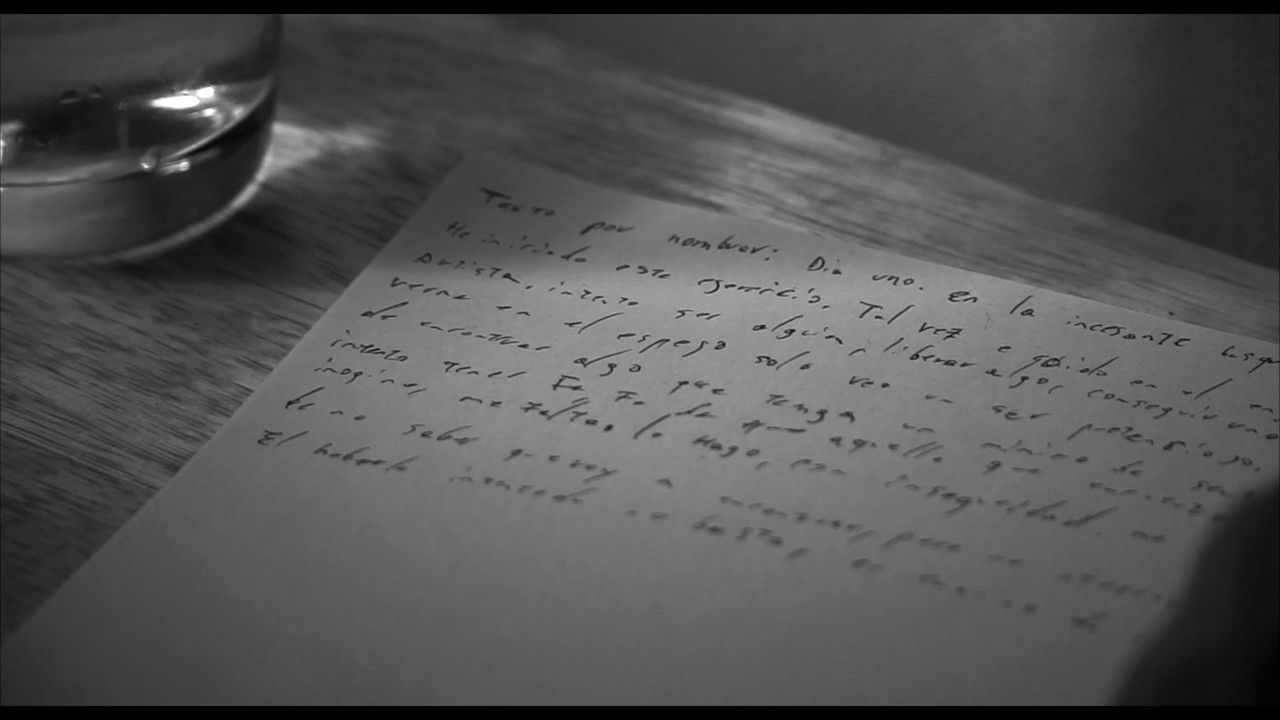 Texto por nombrar: Dia uno. En la incesante busqu
He iniciado este ejercicio. Tal vez e en el
Artista, intento ser algun, liberar algo, conseguir una
verme en el espejo solo veo un ser pretensioso,
de encontrar algo que tenga un minimo de
intento tener Fe Fe de que aquello que
imagino, me falta, lo Hago, con inseguridad. no
de no saber que voy a encontrar, pero no
El haberlo intentado no basta, de